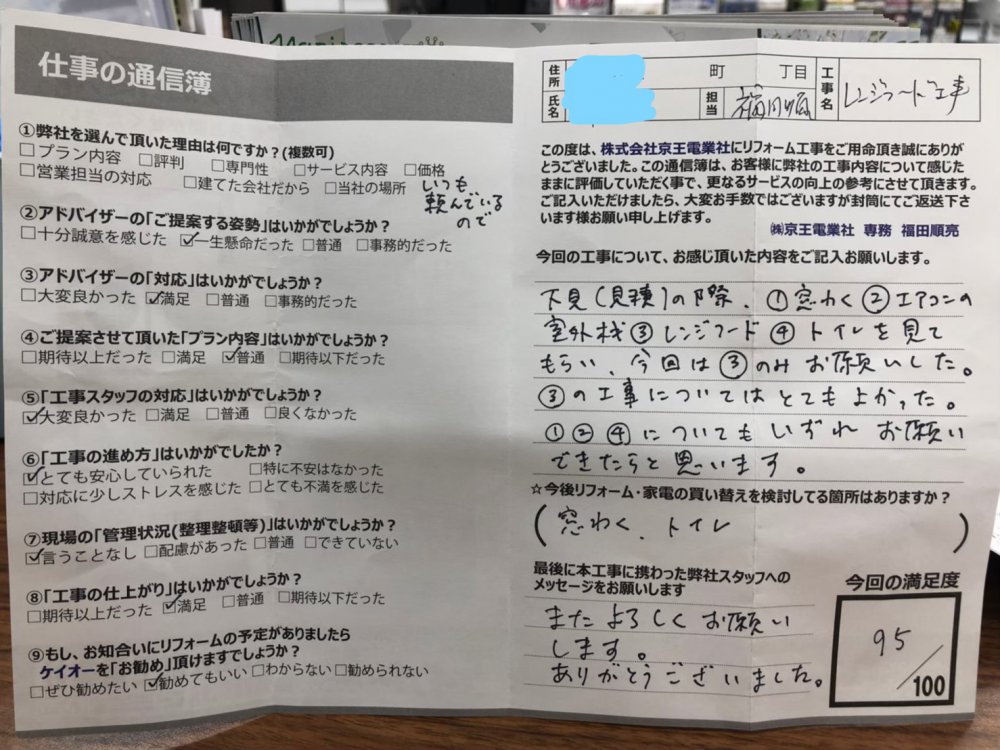 仕事の通信簿
①弊社を選んで頂いた理由は何ですか?(複数可)
□プラン内容 □評判 □専門性 □サービス内容 □価格
□営業担当の対応 □建てた会社だから □当社の場所
いつも
頼んでいる
ので
②アドバイザーの「ご提案する姿勢」はいかがでしょうか?
□十分誠意を感じた ☑一生懸命だった □普通 □事務的だった
③アドバイザーの「対応」はいかがでしょうか?
□大変良かった ☑満足 □普通 □事務的だった
④ご提案させて頂いた「プラン内容」はいかがでしょうか?
□期待以上だった □満足 ☑普通 □期待以下だった
⑤「工事スタッフの対応」はいかがでしょうか?
☑大変良かった □満足 □普通 □良くなかった
⑥「工事の進め方」はいかがでしたか?
☑とても安心していられた □特に不安はなかった
□対応に少しストレスを感じた □とても不満を感じた
⑦現場の「管理状況(整理整頓等)」はいかがでしょうか?
☑言うことなし □配慮があった □普通 □できていない
⑧「工事の仕上がり」はいかがでしょうか?
□期待以上だった ☑満足 □普通 □期待以下だった
⑨もし、お知合いにリフォームの予定がありましたら
ケイオーを「お勧め」頂けますでしょうか?
□ぜひ勧めたい ☑勧めてもいい □わからない □勧められない
住所 町 丁目 工事名 レンジフード工事
氏名 担当
この度は、株式会社京王電業社にリフォーム工事をご用命頂き誠にありが
とうございました。この通信簿は、お客様に弊社の工事内容について感じた
ままに評価していただく事で、更なるサービスの向上の参考にさせて頂きます。
ご記入いただけましたら、大変お手数ではございますが封筒にてご返送下さ
います様お願い申し上げます。
㈱京王電業社 専務 福田順亮
今回の工事について、お感じ頂いた内容をご記入お願いします。
下見(見積)の際、①窓わく②エアコンの
室外材③レンジフード④トイレを見て
もらい、今回は③のみお願いした。
③の工事についてはとてもよかった。
①②④についてもいずれお願い
できたらと思います。
☆今後リフォーム・家電の買い替えを検討してる箇所はありますか?
(窓わく、トイレ)
最後に本工事に携わった弊社スタッフへの
メッセージをお願いします
またよろしくお願い
します。
ありがとうございました。
今回の満足度
95/100